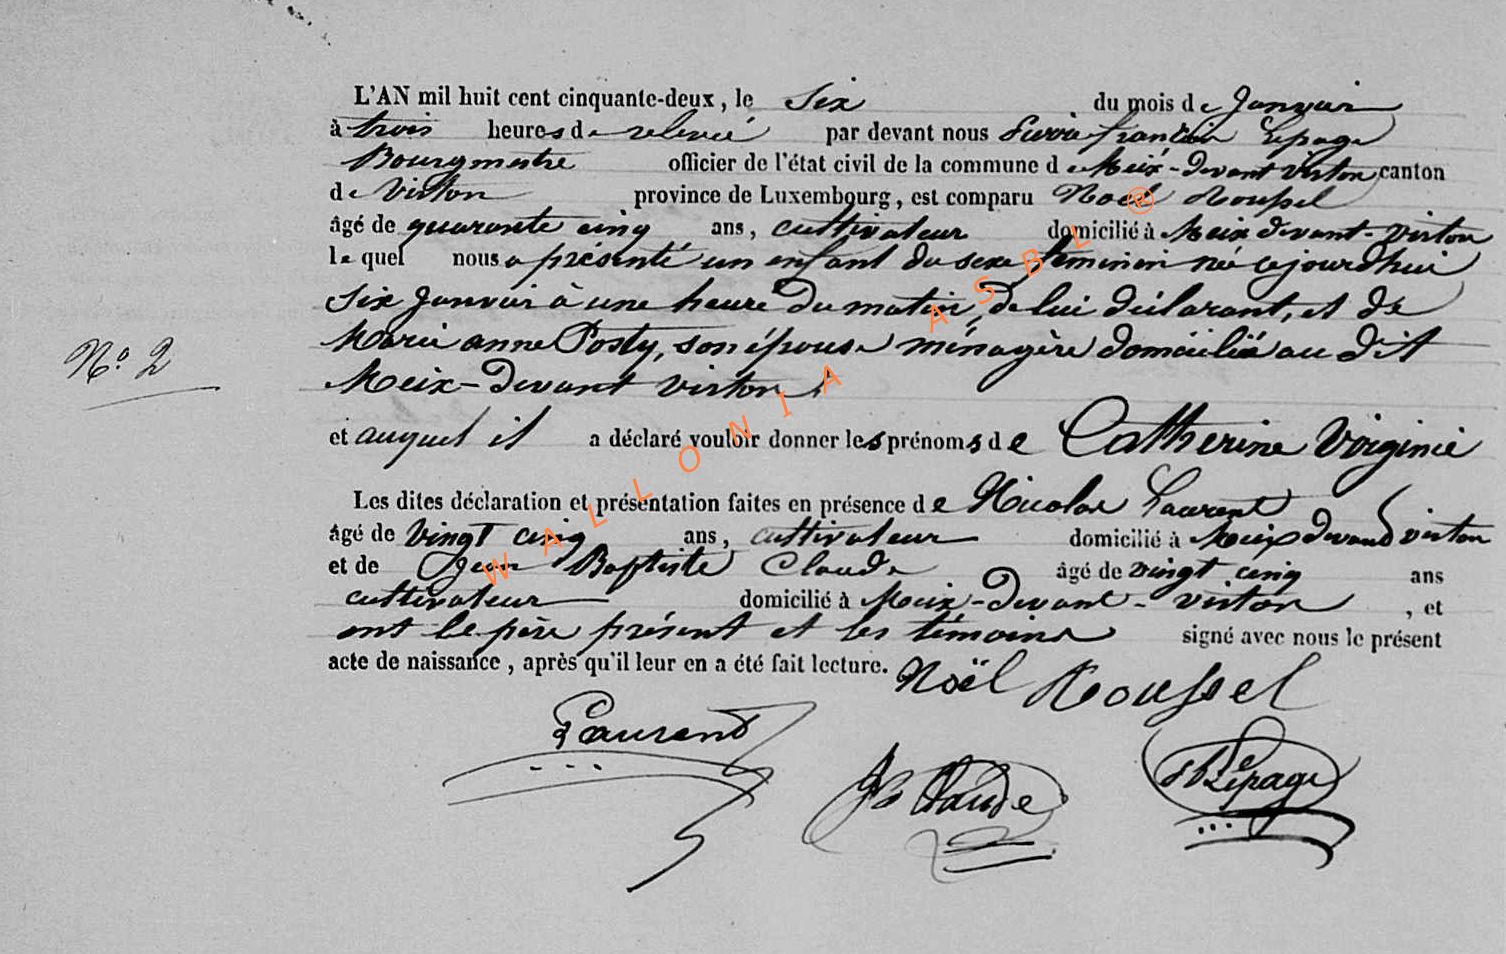 L'AN mil huit cent cinquante-deux, le six du mois de Janvier
à trois heures de relevée par devant nous Pierre françois Lepage
Bourgmestre officier de l'état civil de la commune de Meix-devant virton canton
de Virton province de Luxembourg, est comparu Noel Roussel
âgé de quarante cinq ans, cultivateur domicilié à Meix devant-virton
lequel nous a présenté un enfant du sexe féminin né cejourdhui
six Janvier à une heure du matin, de lui déclarant, et de
Marie anne Posty, son épouse ménagère domiciliée au dit
Nº 2
Meix-devant virton
et auquel il a déclaré vouloir donner les prénoms de Catherine Virginie
Les dites déclaration et présentation faites en présence de Nicolas Laurent
âgé de vingt cinq ans, cultivateur domicilié à Meix devant virton
et de Jean Baptiste Claude âgé de vingt cinq ans
cultivateur domicilié à Meix-devant-virton, et
ont le père présent et les témoins signé avec nous le présent
acte de naissance, après qu'il leur en a été fait lecture. Noël Roussel
Laurent
JB Claude
Lepage
WALLONIA ASBL ®